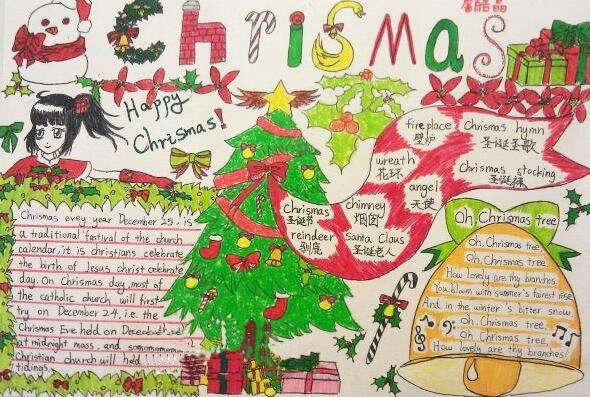 ChriSMaS
Happy
Chrismas!
fireplace
壁炉
Chrismas hymn
圣诞圣歌
wreath
花环
Chrismas stocking
圣诞袜
angel
天使
Chrismas
圣诞节
chimney
烟囱
reindeer
驯鹿
Santa Claus
圣诞老人
Chrismas evey year December 25, is
a traditional festival of the church
calendar, it is christians celebrate
the birth of Jesus christ celebrate
day. On Chrismas day, most of
the catholic church will first
try on December 24, i.e. the
Chrismas Eve held on December
at midnight mass, and
Christian church will held
tidings.
Oh, Chrismas tree
Oh, Chrismas tree
Oh, Chrismas tree
How lovely are thy branches.
You bloom with summer's fairest rose
And in the winter's bitter snow
Oh, Chrismas tree,
Oh, Chrismas tree,
How lovely are thy branches!